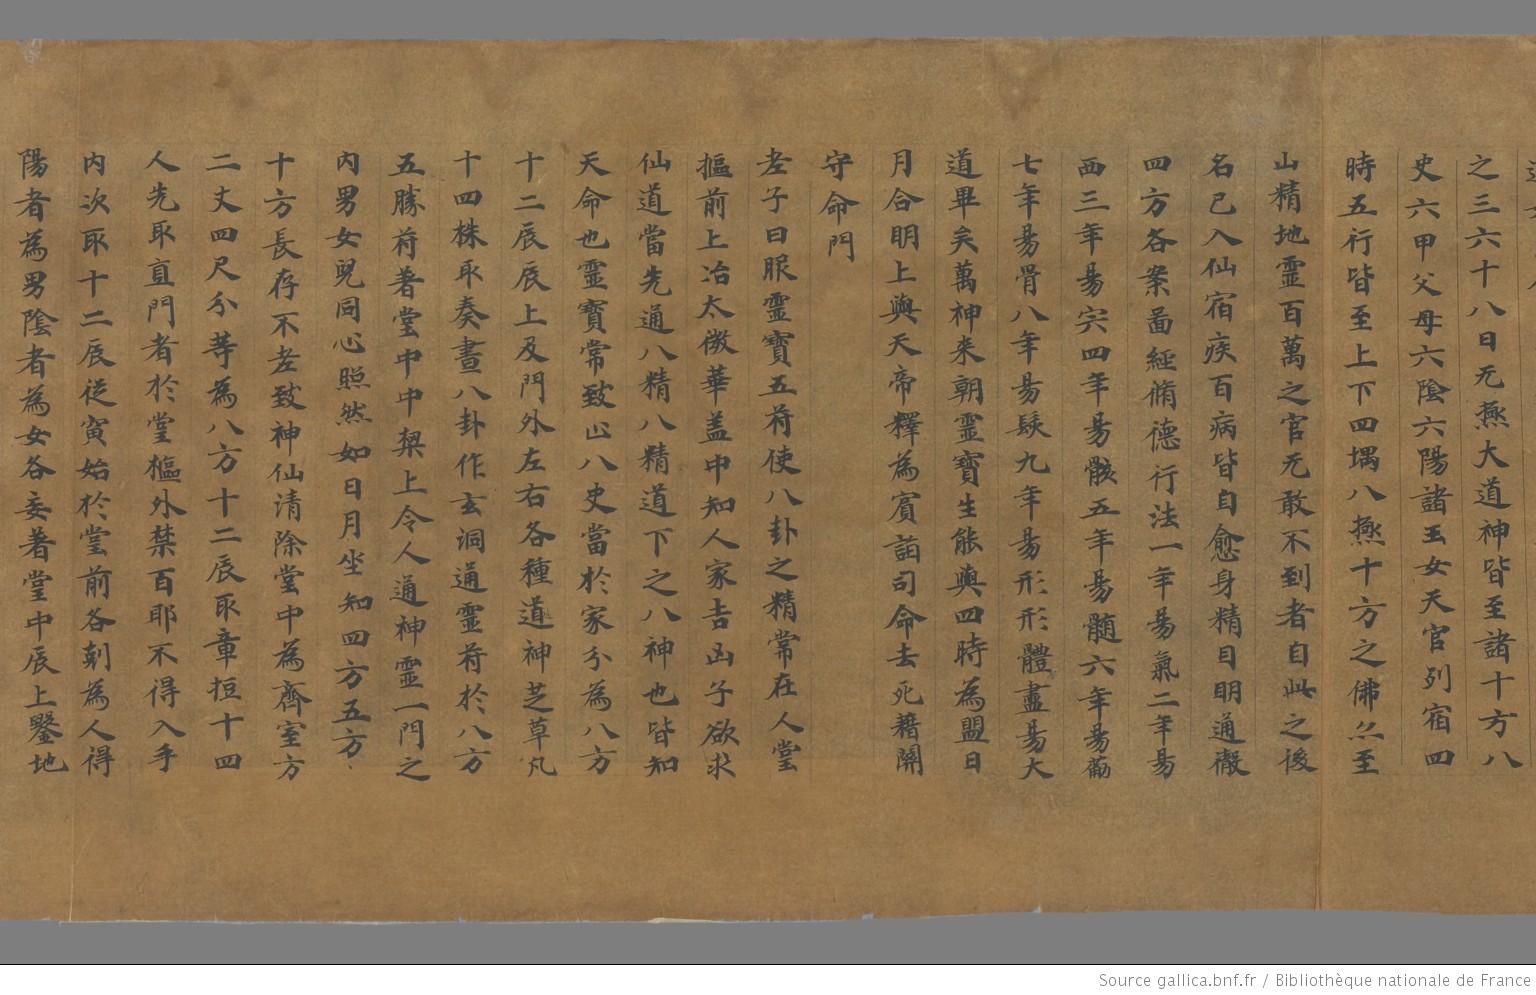 之三六十八日无㷼大道神皆至諸十方八
史六甲父母六陰六陽諸玉女天官列宿四
時五行皆至上下四堣八㷼十方之佛尒至
山精地靈百萬之官无敢不到者自此之後
名已入仙宿疾百病皆自愈身精目明通徹
四方各案啚經脩德行法一年昜氣二年昜
西三年昜宍四年昜骸五年昜髓六年昜荕
七年昜骨八年昜髮九年昜形形體盡昜大
道畢矣萬神来朝靈寶生能與四時為盟日
月合明上與天帝釋為賔詣司命去死藉關
守命門
老子曰服靈寶五符使八卦之精常在人堂
摳前上冶太微華盖中知人家吉凶子欲求
仙道當先通八精八精道下之八神也皆知
天命也靈寶常致此八史當於家分為八方
十二辰辰上及門外左右各種道神芝草凡
十四株取奏晝八卦作玄洞通靈符於八方
五勝符著堂中中梁上令人通神靈一門之
內男女皃同心照然如日月坐知四方五方
十方長存不老致神仙清除堂中為齊室方
二丈四尺分等為八方十二辰取章桓十四
人先取直門者於堂樞外禁百耶不得入手
內次取十二辰從寅始於堂前各剋為人得
陽者為男陰者為女各委著堂中辰上鑿地
Source gallica.bnf.fr / Bibliothèque nationale de France